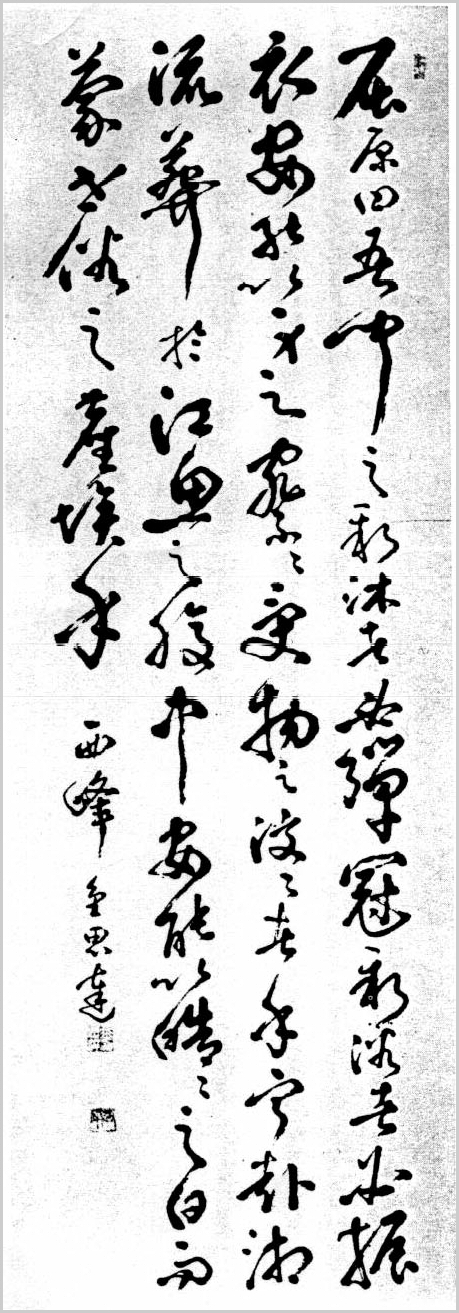 屈原曰吾聞之新沐者必彈冠新浴者必振
衣安能以身之察〻受物之汶〻者乎寧赴湘
流葬於江魚之腹中安能以皓〻之白而
蒙世俗之塵埃乎
西峰 金思達